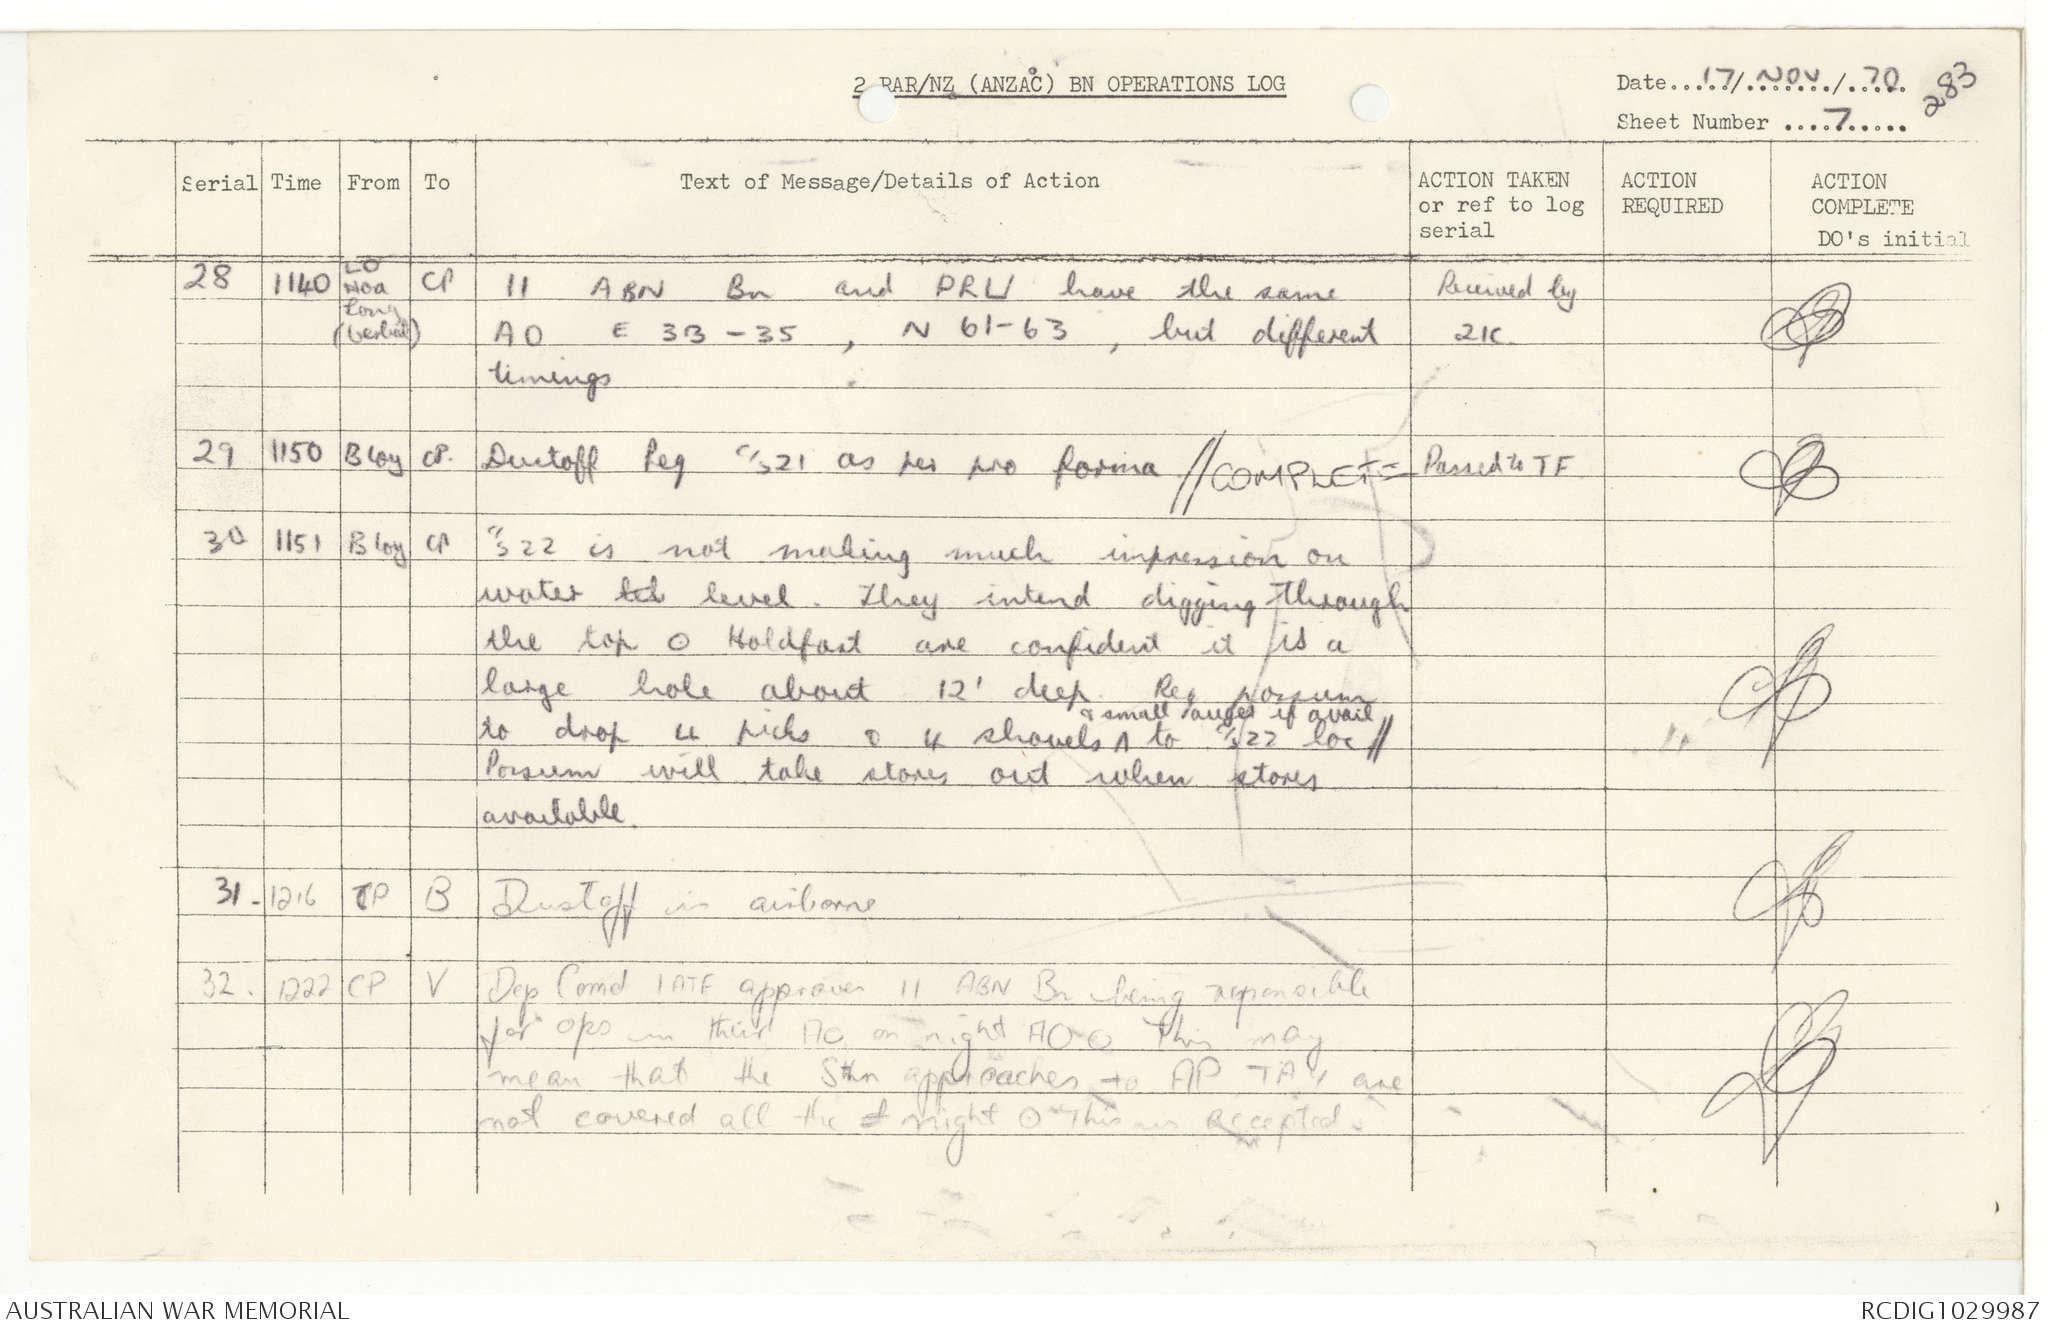 2 RAR/NZ (ANZAC) BN OPERATIONS LOG
Date 17/ NOV / 70
283
Sheet Number 7
Serial Time From To Text of Message/Details of Action ACTION TAKEN or ref to log serial ACTION REQUIRED ACTION COMPLETE DO's initial
28 1140 LO Hoa Long (Verbal) CP 11 ABN Bn and PRU have the same Received by
AO E 33-35, N 61-63, but different 2IC.
timings
29 1150 B Coy CP. Dustoff Req C/S21 as per pro forma // COMPLETE Passed to TF
30 1151 B Coy CP C/S 22 is not making much impression on
water level. They intend digging through
the top o Holdfast are confident it is a
large hole about 12' deep. Req possum
& small auger if avail
to drop 4 picks o 4 shovels ∧ to C/S22 loc //
Possum will take stores out when stores
available.
31. 1216 CP B Dustoff is airborne
32. 1222 CP V Dep Comd 1ATF approves 11 ABN Bn being responsible
for ops in their AO on night AO o This may
mean that the Sthn approaches to AP TA 4 are
not covered all the night o This is accepted.
AUSTRALIAN WAR MEMORIAL
RCDIG1029987